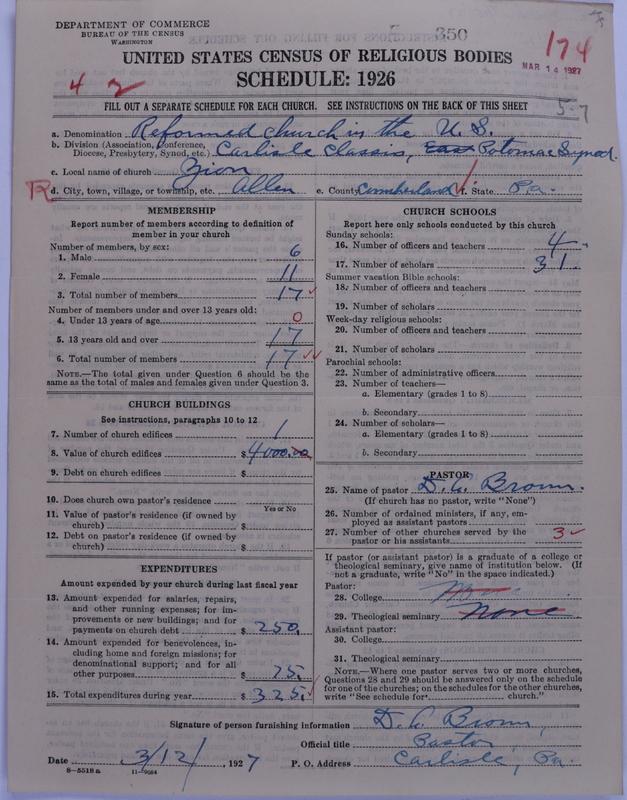 DEPARTMENT OF COMMERCE
BUREAU OF THE CENSUS
WASHINGTON
350
174
MAR 14 1927
UNITED STATES CENSUS OF RELIGIOUS BODIES
SCHEDULE: 1926
4 2
FILL OUT A SEPARATE SCHEDULE FOR EACH CHURCH. SEE INSTRUCTIONS ON THE BACK OF THIS SHEET
5-7
a. Denomination Reformed Church in the U. S.
b. Division (Association, Conference,
Diocese, Presbytery, Synod, etc.) Carlisle Classis, East Potomac Synod.
c. Local name of church Zion
R d. City, town, village, or township, etc. Allen e. County Cumberland f. State Pa.
MEMBERSHIP
Report number of members according to definition of
member in your church
Number of members, by sex:
1. Male 6
2. Female 11
3. Total number of members 17
Number of members under and over 13 years old:
4. Under 13 years of age 0
5. 13 years old and over 17
6. Total number of members 17
NOTE.—The total given under Question 6 should be the
same as the total of males and females given under Question 3.
CHURCH BUILDINGS
See instructions, paragraphs 10 to 12
7. Number of church edifices 1
8. Value of church edifices $ 4000.00
9. Debt on church edifices $
10. Does church own pastor's residence
Yes or No
11. Value of pastor's residence (if owned by
church) $
12. Debt on pastor's residence (if owned by
church) $
EXPENDITURES
Amount expended by your church during last fiscal year
13. Amount expended for salaries, repairs,
and other running expenses; for im-
provements or new buildings; and for
payments on church debt $ 250.
14. Amount expended for benevolences, in-
cluding home and foreign missions; for
denominational support; and for all
other purposes $ 75.
15. Total expenditures during year $ 325.
CHURCH SCHOOLS
Report here only schools conducted by this church
Sunday schools:
16. Number of officers and teachers 4
17. Number of scholars 31
Summer vacation Bible schools:
18. Number of officers and teachers
19. Number of scholars
Week-day religious schools:
20. Number of officers and teachers
21. Number of scholars
Parochial schools:
22. Number of administrative officers
23. Number of teachers—
a. Elementary (grades 1 to 8)
b. Secondary
24. Number of scholars—
a. Elementary (grades 1 to 8)
b. Secondary
PASTOR
25. Name of pastor D. C. Brown.
(If church has no pastor, write "None")
26. Number of ordained ministers, if any, em-
ployed as assistant pastors
27. Number of other churches served by the
pastor or his assistants 3
If pastor (or assistant pastor) is a graduate of a college or
theological seminary, give name of institution below. (If
not a graduate, write "No" in the space indicated.)
Pastor:
28. College
29. Theological seminary None
Assistant pastor:
30. College
31. Theological seminary
NOTE.—Where one pastor serves two or more churches,
Questions 28 and 29 should be answered only on the schedule
for one of the churches; on the schedules for the other churches,
write "See schedule for church."
Signature of person furnishing information D. C. Brown,
Official title Pastor
Date 3/12/ 1927 P. O. Address Carlisle, Pa.
8-5518 a 11-9084